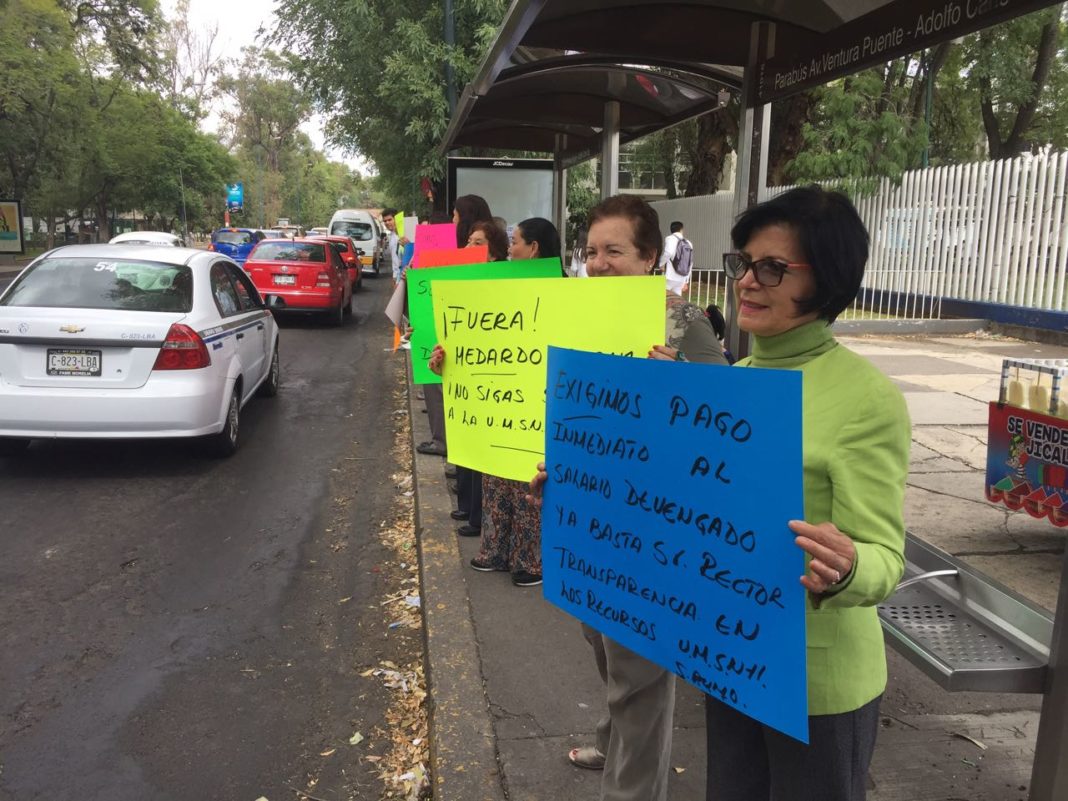 Parabús Av. Ventura Puente - Adolfo Cano
JCDecaux
54
C-823-LBA
C-823-LBA
¡FUERA!
MEDARDO
¡NO SIGAS
A LA U.M.S.N.
EXIGIMOS PAGO
INMEDIATO AL
SALARIO DEVENGADO
YA BASTA Sr. RECTOR
TRANSPARENCIA EN
LOS RECURSOS U.M.S.N.H!
SPUMO.
SE VENDE
JICAL